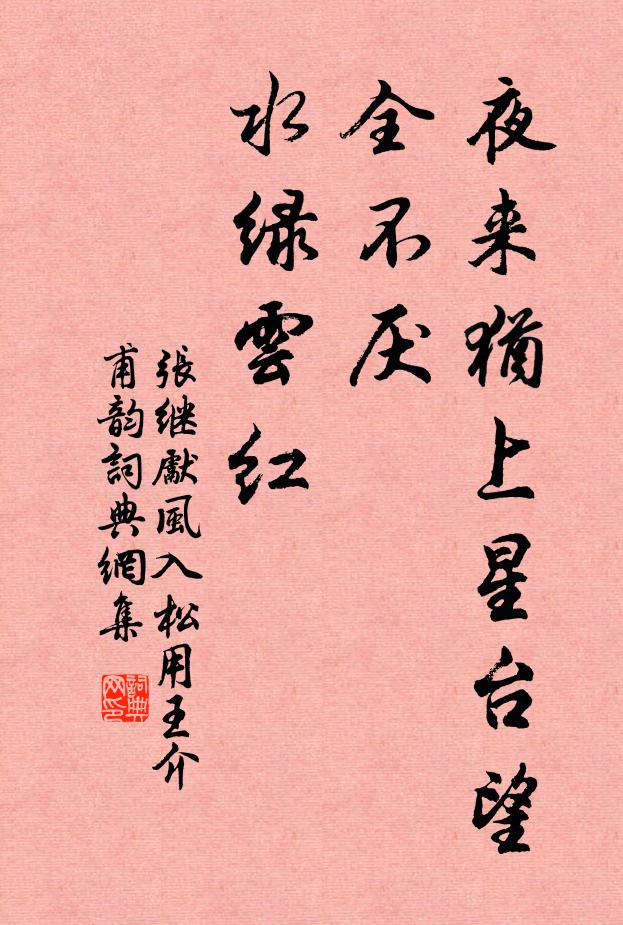 夜来猶上星台望
全不厌
水绿雲红
張继獻風入松用王介
甫韵詞典網集
詞典网印